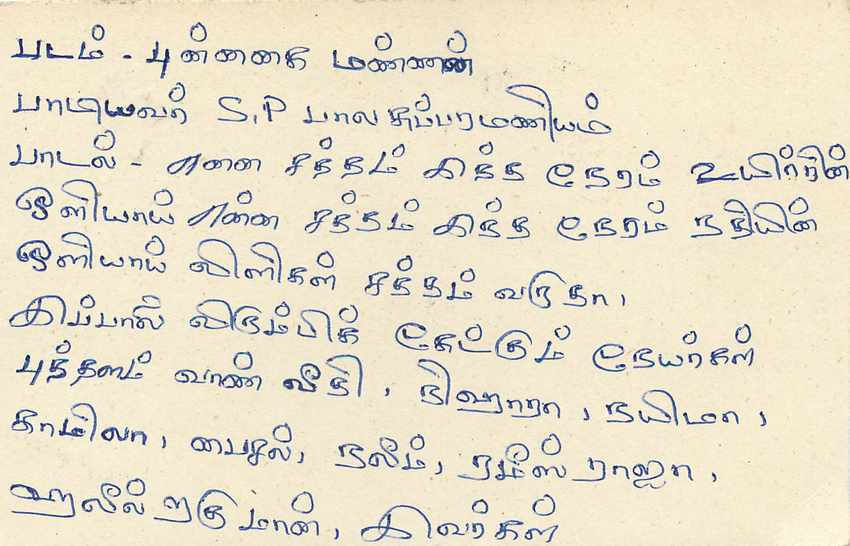 படம் - புன்னகை மன்னன்
பாடியவர் S.P பாலசுப்பரமணியம்
பாடல் - என்ன சத்தம் இந்த நேரம் உயிர்ரின்
ஒளியாய் என்ன சத்தம் இந்த நேரம் நதியின்
ஒளியாய் கிளிகள் சத்தம் வருதா,
இப்பாலி விரும்பிக் கேட்கும் நேயர்கள்
புத்தளம் வாண் வீதி, நிஹாரா, நயிமா,
காமிலா, பைசல், நலீம், ரமீஸ் ராஜா,
ஹலீல் றகுமான், இவர்கள்